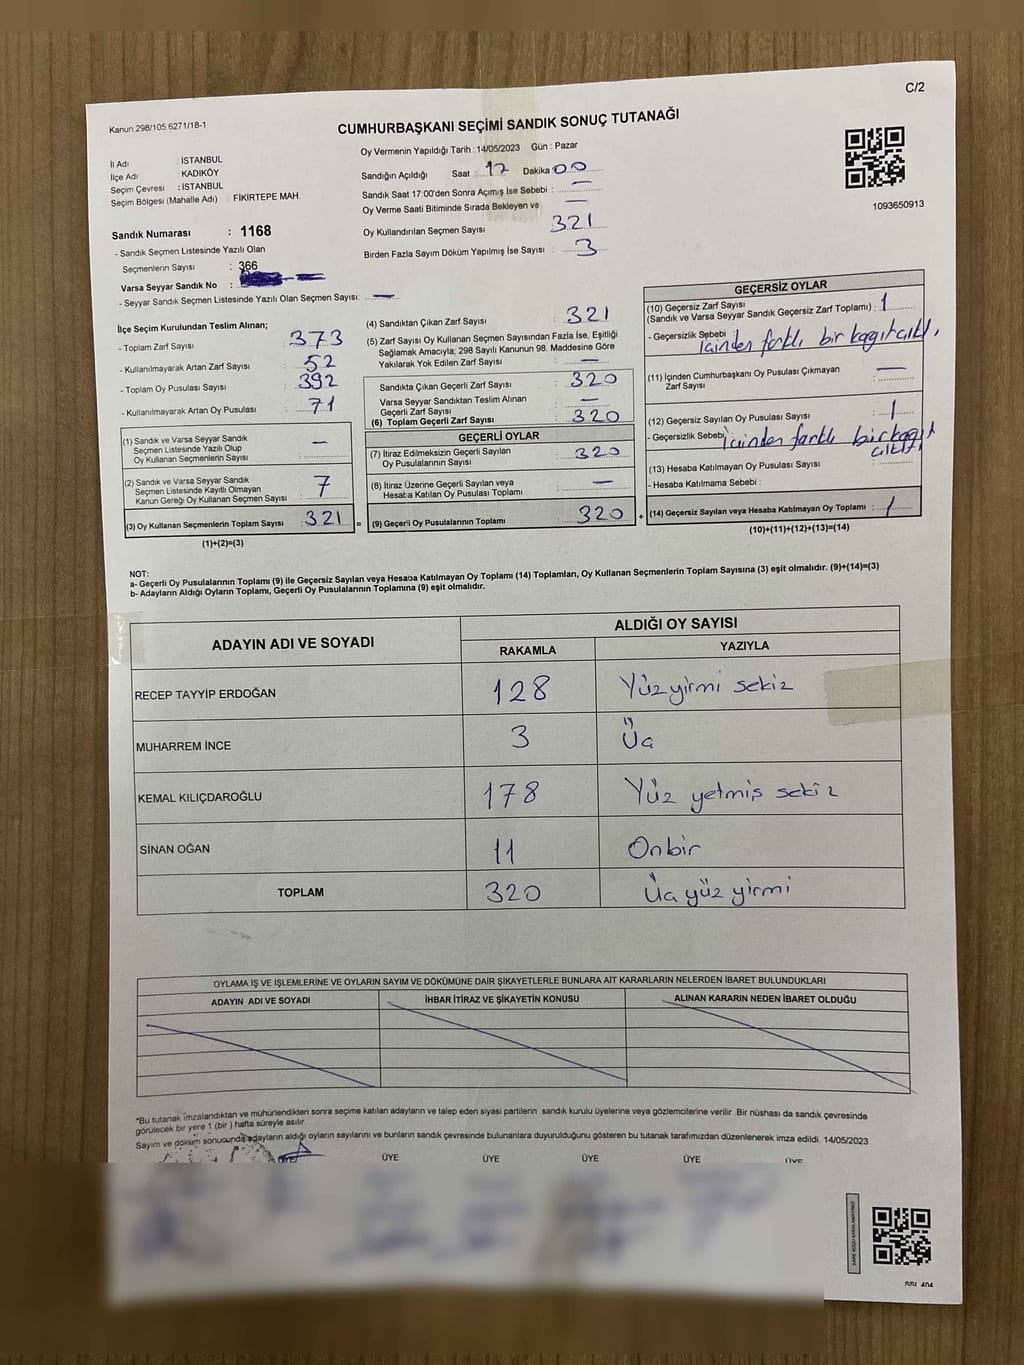 C/2
Kanun 298/105 6271/18-1
CUMHURBAŞKANI SEÇİMİ SANDIK SONUÇ TUTANAĞI
Oy Vermenin Yapıldığı Tarih : 14/05/2023 Gün : Pazar
İl Adı : İSTANBUL
İlçe Adı : KADIKÖY
Seçim Çevresi : İSTANBUL
Seçim Bölgesi (Mahalle Adı) : FİKİRTEPE MAH.
Sandığın Açıldığı Saat : 17 Dakika : 00
Sandık Saat 17:00'den Sonra Açılmış İse Sebebi : —
Oy Verme Saati Bitiminde Sırada Bekleyen ve —
Oy Kullandırılan Seçmen Sayısı 321
Birden Fazla Sayım Döküm Yapılmış İse Sayısı : 3
1093650913
Sandık Numarası : 1168
- Sandık Seçmen Listesinde Yazılı Olan
Seçmenlerin Sayısı : 366
Varsa Seyyar Sandık No :
- Seyyar Sandık Seçmen Listesinde Yazılı Olan Seçmen Sayısı: —
İlçe Seçim Kurulundan Teslim Alınan;
- Toplam Zarf Sayısı : 373
- Kullanılmayarak Artan Zarf Sayısı : 52
- Toplam Oy Pusulası Sayısı : 392
- Kullanılmayarak Artan Oy Pusulası : 71
(1) Sandık ve Varsa Seyyar Sandık
Seçmen Listesinde Yazılı Olup
Oy Kullanan Seçmenlerin Sayısı : —
(2) Sandık ve Varsa Seyyar Sandık
Seçmen Listesinde Kayıtlı Olmayan
Kanun Gereği Oy Kullanan Seçmen Sayısı : 7
(3) Oy Kullanan Seçmenlerin Toplam Sayısı : 321
(1)+(2)=(3)
(4) Sandıktan Çıkan Zarf Sayısı : 321
(5) Zarf Sayısı Oy Kullanan Seçmen Sayısından Fazla İse, Eşitliği
Sağlamak Amacıyla; 298 Sayılı Kanunun 98. Maddesine Göre
Yakılarak Yok Edilen Zarf Sayısı : —
Sandıkta Çıkan Geçerli Zarf Sayısı : 320
Varsa Seyyar Sandıktan Teslim Alınan
Geçerli Zarf Sayısı : —
(6) Toplam Geçerli Zarf Sayısı : 320
GEÇERLİ OYLAR
(7) İtiraz Edilmeksizin Geçerli Sayılan
Oy Pusulalarının Sayısı : 320
(8) İtiraz Üzerine Geçerli Sayılan veya
Hesaba Katılan Oy Pusulası Toplamı : —
= (9) Geçerli Oy Pusulalarının Toplamı : 320 +
GEÇERSİZ OYLAR
(10) Geçersiz Zarf Sayısı
(Sandık ve Varsa Seyyar Sandık Geçersiz Zarf Toplamı) : 1
- Geçersizlik Sebebi içinden farklı bir kağıt çıktı,
(11) İçinden Cumhurbaşkanı Oy Pusulası Çıkmayan
Zarf Sayısı : —
(12) Geçersiz Sayılan Oy Pusulası Sayısı : 1
- Geçersizlik Sebebi içinden farklı bir kağıt
çıktı,
(13) Hesaba Katılmayan Oy Pusulası Sayısı :
- Hesaba Katılmama Sebebi :
(14) Geçersiz Sayılan veya Hesaba Katılmayan Oy Toplamı : 1
(10)+(11)+(12)+(13)=(14)
NOT:
a- Geçerli Oy Pusulalarının Toplamı (9) ile Geçersiz Sayılan veya Hesaba Katılmayan Oy Toplamı (14) Toplamları, Oy Kullanan Seçmenlerin Toplam Sayısına (3) eşit olmalıdır. (9)+(14)=(3)
b- Adayların Aldığı Oyların Toplamı, Geçerli Oy Pusulalarının Toplamına (9) eşit olmalıdır.
ADAYIN ADI VE SOYADI
ALDIĞI OY SAYISI
RAKAMLA YAZIYLA
RECEP TAYYİP ERDOĞAN 128 Yüzyirmi sekiz
MUHARREM İNCE 3 Üç
KEMAL KILIÇDAROĞLU 178 Yüz yetmiş sekiz
SİNAN OĞAN 11 Onbir
TOPLAM 320 Üç yüz yirmi
OYLAMA İŞ VE İŞLEMLERİNE VE OYLARIN SAYIM VE DÖKÜMÜNE DAİR ŞİKAYETLERLE BUNLARA AİT KARARLARIN NELERDEN İBARET BULUNDUKLARI
ADAYIN ADI VE SOYADI İHBAR İTİRAZ VE ŞİKAYETİN KONUSU ALINAN KARARIN NEDEN İBARET OLDUĞU
*Bu tutanak imzalandıktan ve mühürlendikten sonra seçime katılan adayların ve talep eden siyasi partilerin sandık kurulu üyelerine veya gözlemcilerine verilir. Bir nüshası da sandık çevresinde
görülecek bir yere 1 (bir) hafta süreyle asılır.
Sayım ve döküm sonucunda adayların aldığı oyların sayılarını ve bunların sandık çevresinde bulunanlara duyurulduğunu gösteren bu tutanak tarafımızdan düzenlenerek imza edildi. 14/05/2023
ÜYE ÜYE ÜYE ÜYE ÜYE ÜYE